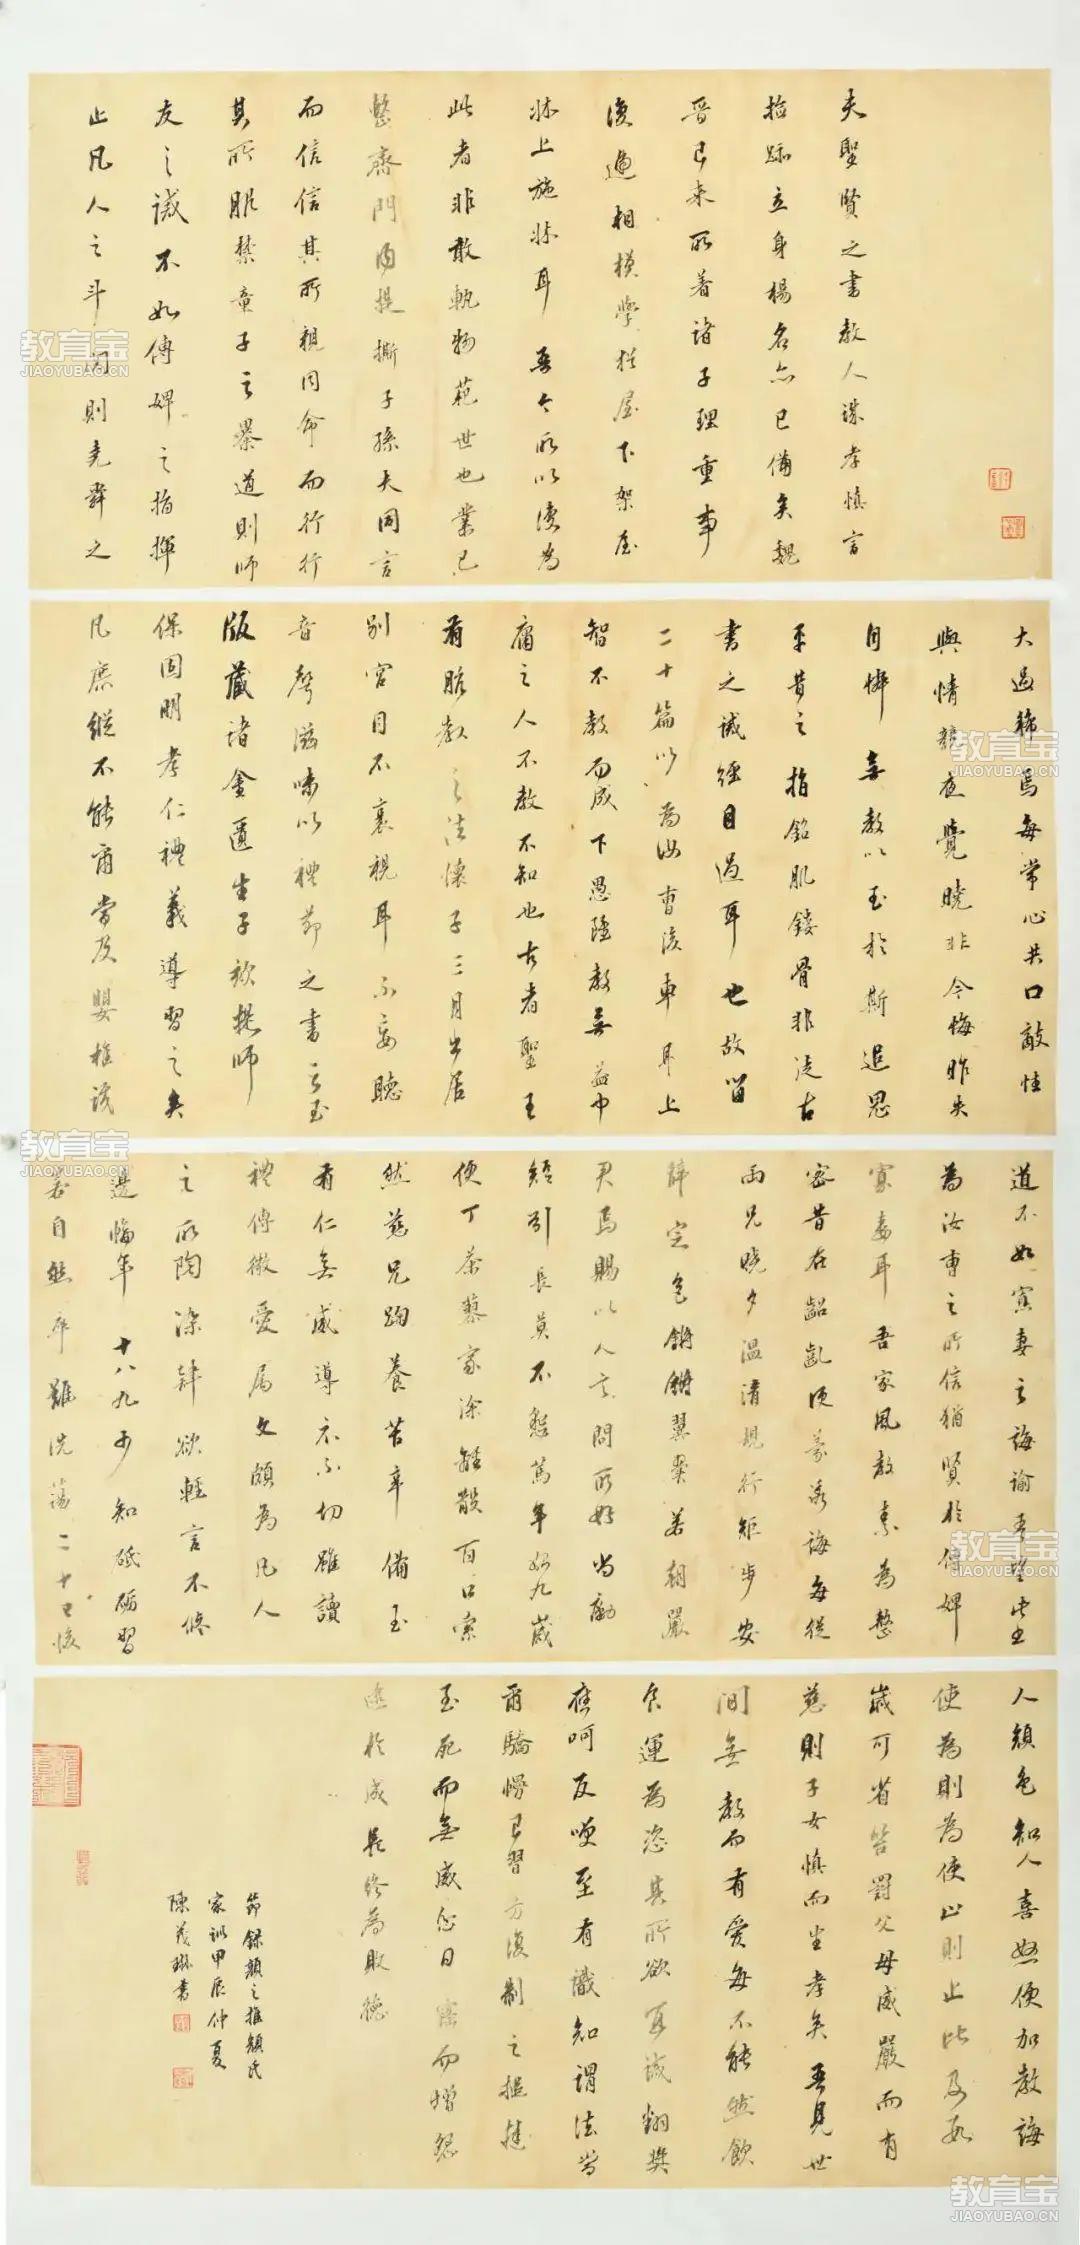 夫聖賢之書教人誠孝慎言
撿跡立身揚名亦已備矣魏
晉已來所著諸子理重事
復遞相模學猶屋下架屋
牀上施牀耳 吾今所以復為
此者非敢軌物範世也業已
整齊門內提撕子孫夫同言
而信信其所親同命而行行
其所服禁童子之暴謔則師
友之誡不如傅婢之指揮
止凡人之斗鬩則堯舜之
大過稀焉每常心共口敵性
與情競夜覺曉非今悔昨失
自憐 無教以至於斯追思
平昔之指銘肌鏤骨非徒古
書之誡經目過耳也故留
二十篇以為汝曹後車耳上
智不教而成下愚雖教無益中
庸之人不教不知也古者聖王
有胎教之法懷子三月出居
別宮目不衺視耳不妄聽
音聲滋味以禮節之書之玉
版藏諸金匱生子孩提師
保固明孝仁禮義導習之矣
凡庶縱不能爾當及嬰稚識
道不如寡妻之誨諭吾望此書
為汝曹之所信猶賢於傅婢
寡妻耳 吾家風教素為整
密昔在齠齔便蒙誘誨每從
兩兄曉夕溫凊規行矩步安
辭定色鏘鏘翼翼若朝嚴
君焉賜以人言問所好尚勵
短引長莫不懇篤年始九歲
便丁荼蓼家塗離散百口索
然慈兄鞠養苦辛備至
有仁無威導示不切雖讀
禮傳微愛屬文頗為凡人
之所陶染肆欲輕言不修
邊幅年 十八九少知砥礪習
若自然卒難洗蕩二十已後
人顏色知人喜怒便加教誨
使為則為使止則止比及數
歲可省笞罰父母威嚴而有
慈則子女慎而生孝矣吾見世
間無教而有愛每不能然飲
食運為恣其所欲宜誡翻獎
應呵反哽至有識知謂法當
爾驕慢已習方復制之捶撻
至死而無威忿日密而增怨
逮於成長終為敗德
節錄顏之推顏氏
家訓甲辰仲夏
陳茂琳書
教育宝
JIAOYUBAO.CN
教育宝
JIAOYUBAO.CN
教育宝
JIAOYUBAO.CN
教育宝
JIAOYUBAO.CN
教育宝
JIAOYUBAO.CN